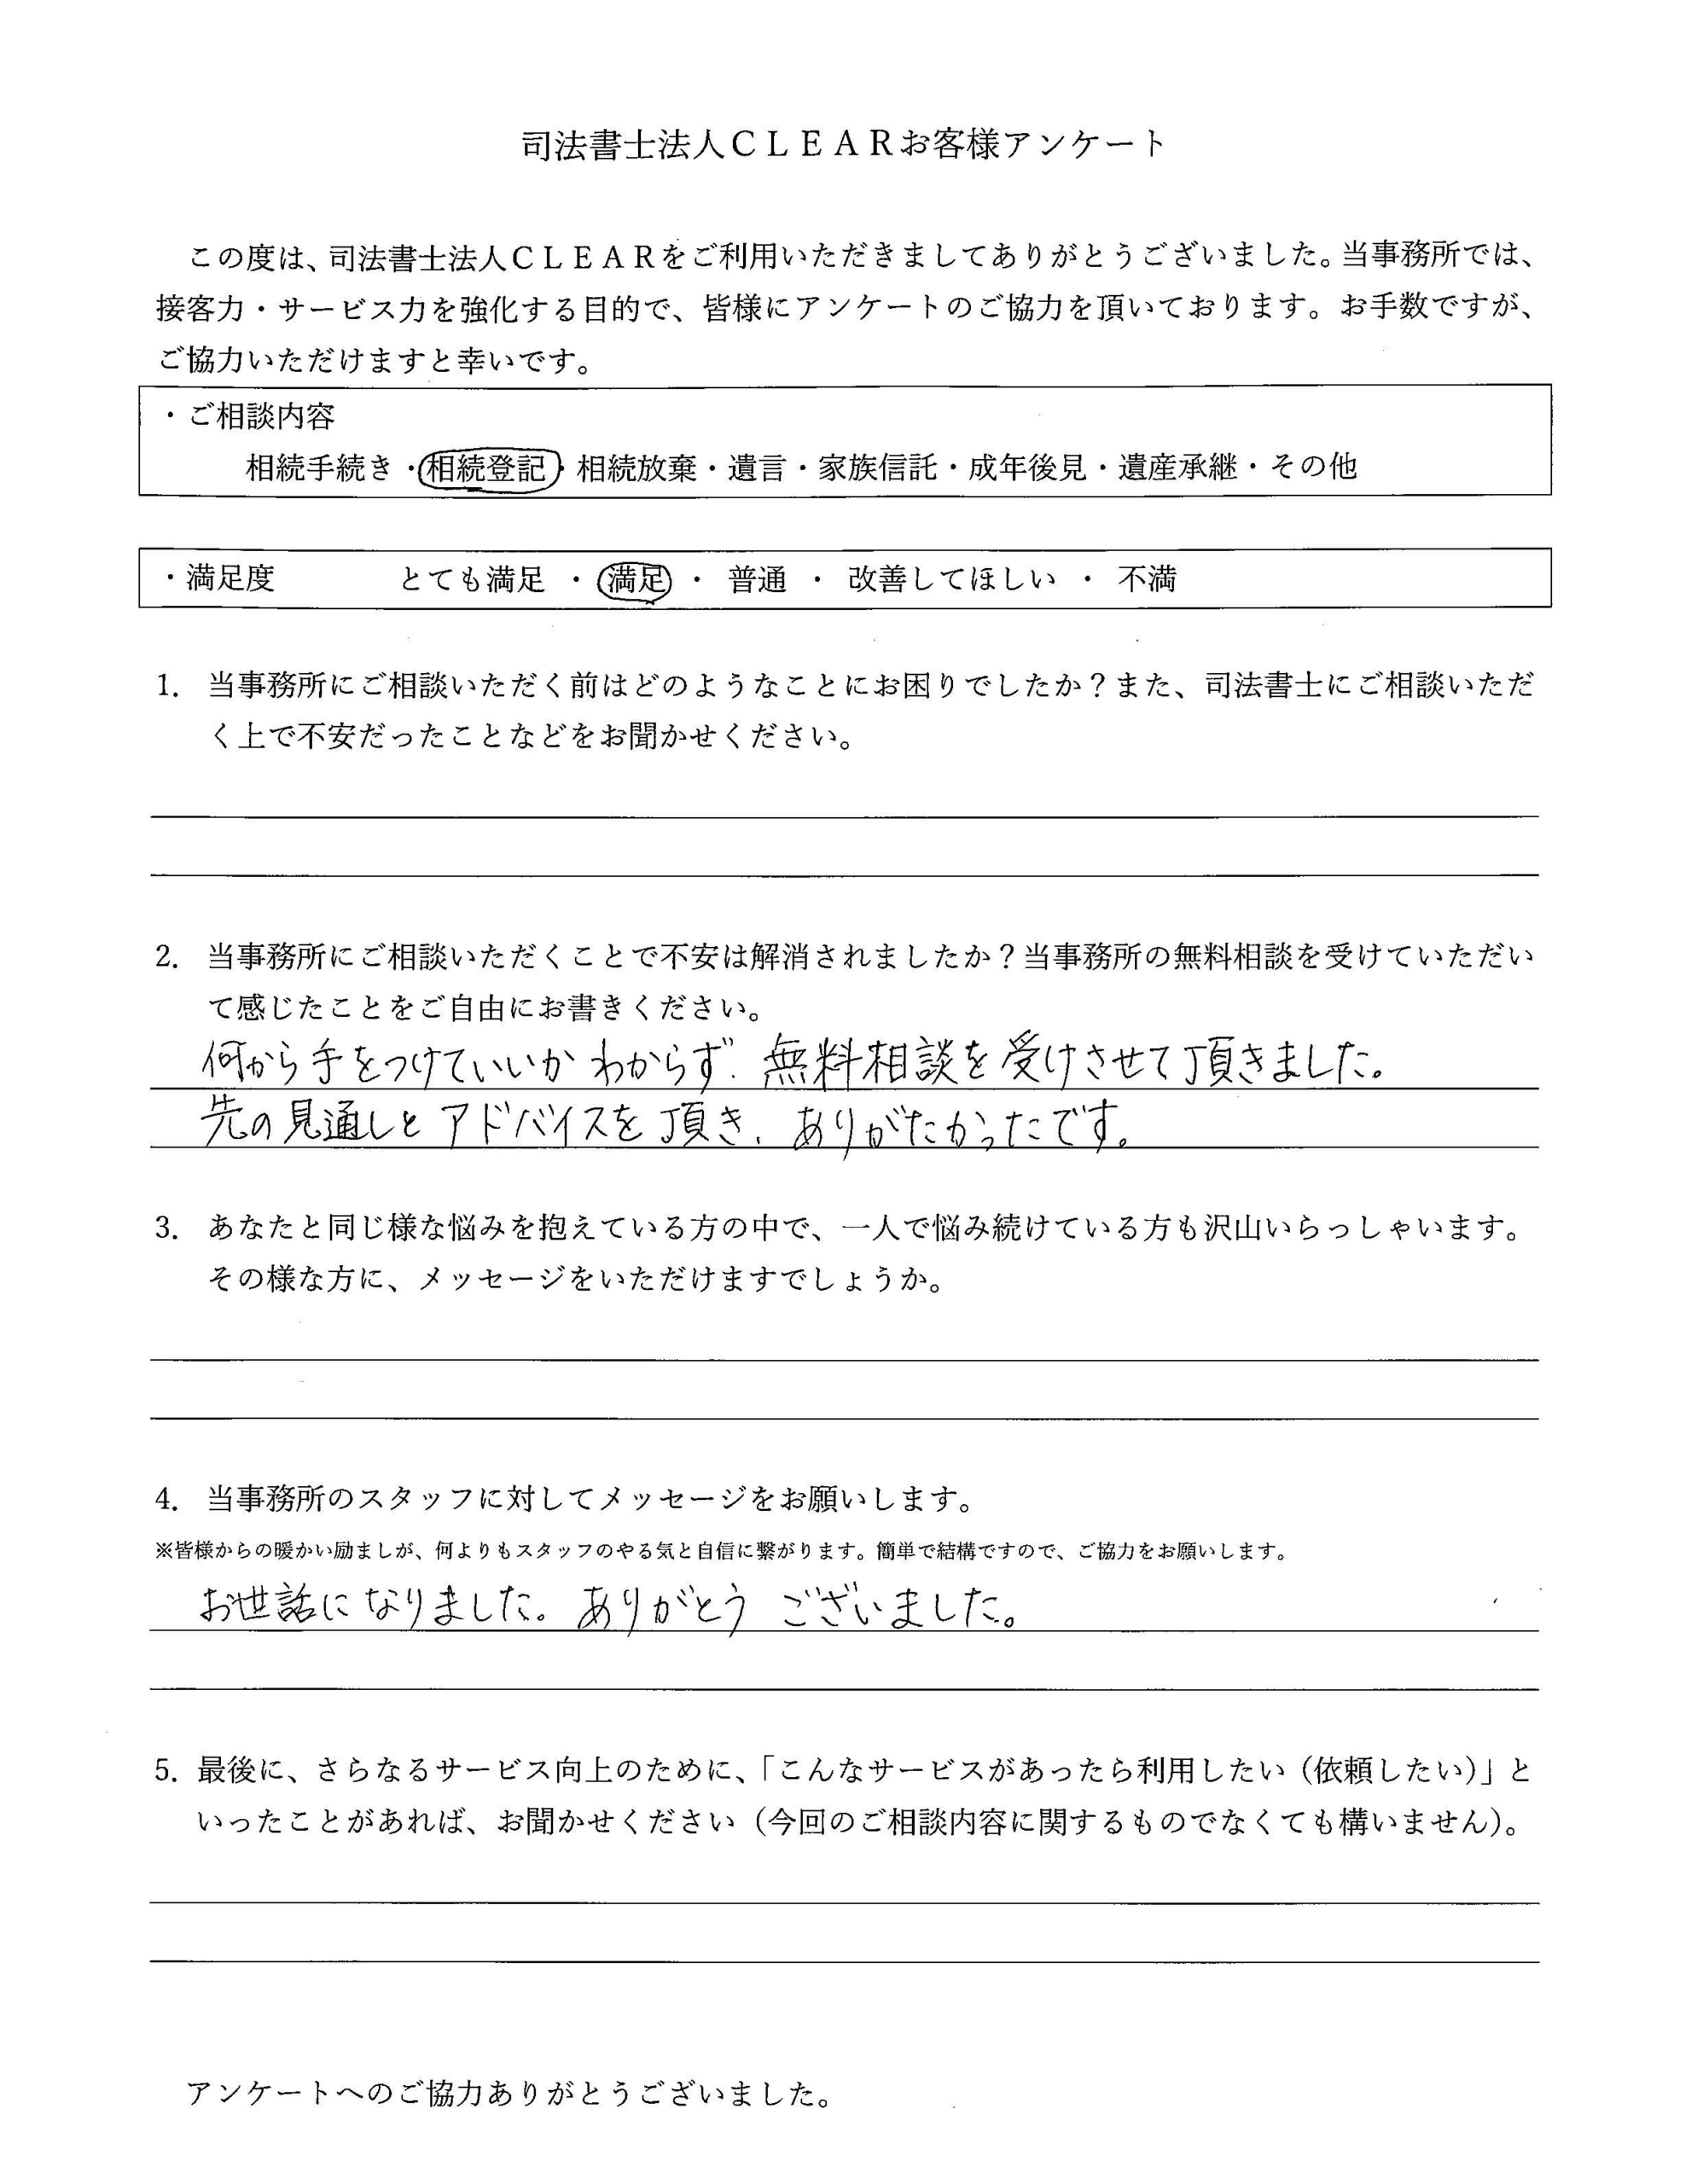 司法書士法人ＣＬＥＡＲお客様アンケート
この度は、司法書士法人ＣＬＥＡＲをご利用いただきましてありがとうございました。当事務所では、
接客力・サービス力を強化する目的で、皆様にアンケートのご協力を頂いております。お手数ですが、
ご協力いただけますと幸いです。
・ご相談内容
相続手続き・相続登記・相続放棄・遺言・家族信託・成年後見・遺産承継・その他
・満足度　とても満足　・　満足　・　普通　・　改善してほしい　・　不満
1.　当事務所にご相談いただく前はどのようなことにお困りでしたか？また、司法書士にご相談いただ
く上で不安だったことなどをお聞かせください。
2.　当事務所にご相談いただくことで不安は解消されましたか？当事務所の無料相談を受けていただい
て感じたことをご自由にお書きください。
何から手をつけていいか わからず、無料相談を受けさせて頂きました。
先の見通しと アドバイスを 頂き、ありがたかったです。
3.　あなたと同じ様な悩みを抱えている方の中で、一人で悩み続けている方も沢山いらっしゃいます。
その様な方に、メッセージをいただけますでしょうか。
4.　当事務所のスタッフに対してメッセージをお願いします。
※皆様からの暖かい励ましが、何よりもスタッフのやる気と自信に繋がります。簡単で結構ですので、ご協力をお願いします。
お世話に なりました。ありがとう ございました。
5. 最後に、さらなるサービス向上のために、「こんなサービスがあったら利用したい（依頼したい）」と
いったことがあれば、お聞かせください（今回のご相談内容に関するものでなくても構いません）。
アンケートへのご協力ありがとうございました。